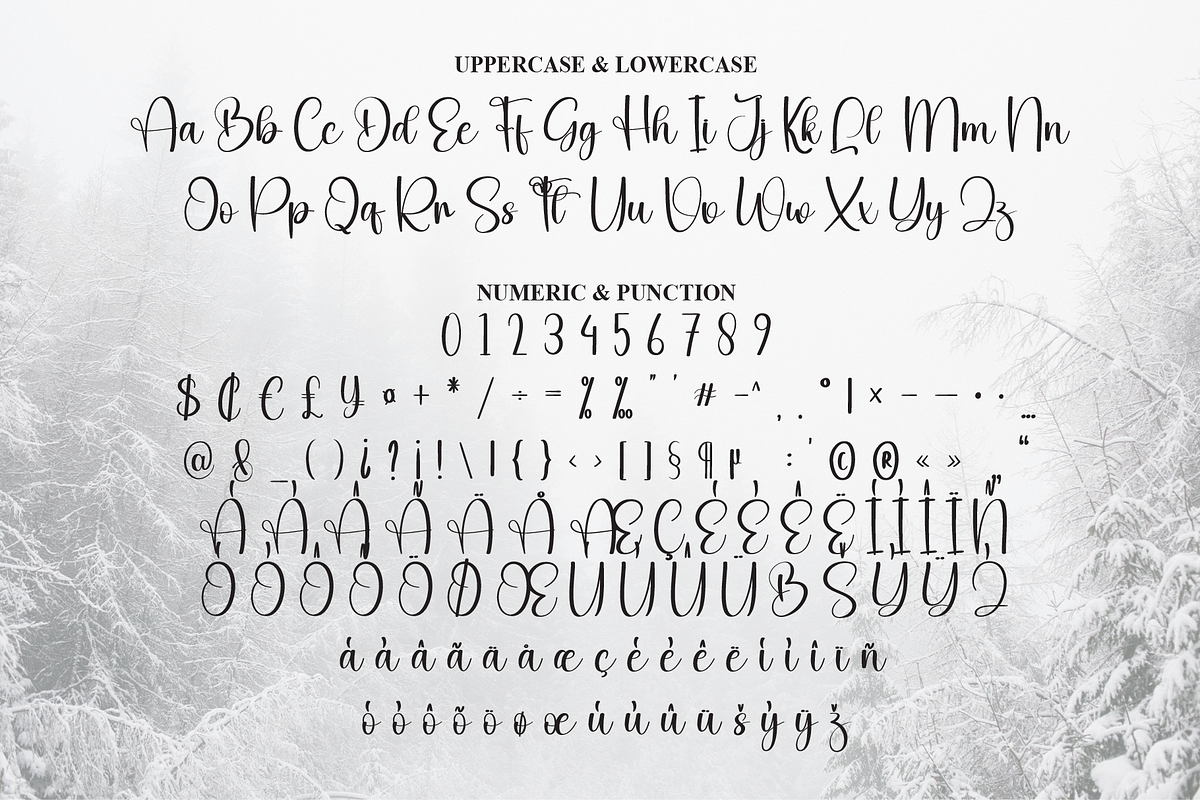 UPPERCASE & LOWERCASE
Aa Bb Cc Dd Ee Ff Gg Hh Ii Jj Kk Ll Mm Nn
Oo Pp Qq Rr Ss Tt Uu Vv Ww Xx Yy Zz
NUMERIC & PUNCTION
0 1 2 3 4 5 6 7 8 9
$ ₵ € £ ¥ ¤ + * / ÷ = % ‰ " ' # - ^ , . ° | × – — • · …
@ & _ ( ) ¿ ? ¡ ! \ | { } ‹ › [ ] § ¶ µ : ' © ® « » “ ”
Á À Â Ã Ä Å Æ Ç É È Ê Ë Í Ì Î Ï Ñ
Ó Ò Ô Õ Ö Ø Œ Ú Ù Û Ü B Š Ý Ÿ Ž
á à â ã ä å æ ç é è ê ë í ì î ï ñ
ó ò ô õ ö ø œ ú ù û ü š ý ÿ ž